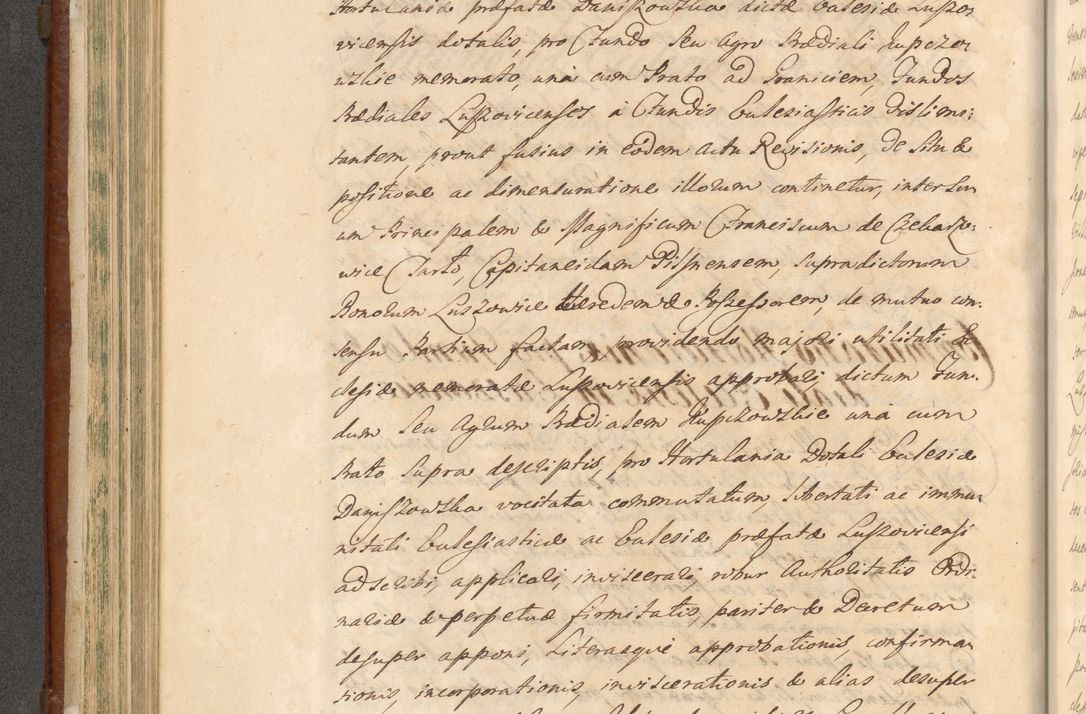 Hortulaniæ præfatæ Daniszowska dictæ Ecclesiæ Luszo-
vicensis dotalis, pro Fundo seu Agro Prædiali Kupczo-
wskie memorato, una cum Prato ad Graniciem, Fundos
Prædiales Luszovicenses à Fundis Ecclesiasticis dislimi:
tantem, prout fusius in eodem Actu Revisionis, de Situ &
positione ac dimensuratione illorum continetur, inter Suu
um Principalem & Magnificum Franciscum de Czekarzo:
wice Tarło, Capitaneidam Pisnensem, supradictorum
Bonorum Luszowice Hæredem & Possessorem, de mutuo con-
sensu Partium factam, providendo majori utilitati Ec
clesiæ memoratæ Luszovicensis approbari, dictum Fun-
dum seu Agrum Prædialem Kupczowskie una cum
Prato supra descriptis, pro Hortulania Dotali Ecclesiæ
Daniszowska vocitata commutatum, libertati ac immu-
nitati Ecclesiasticæ ac Ecclesiæ præfatæ Luszovicensi
adscribi, applicari, inviscerari, robur Authoritatis Ordi:
nariæ & perpetuæ firmitatis, pariter & Decretum
desuper apponi, Literasque approbationis, confirma-
tionis, incorporationis, inviscerationis & alias desuper